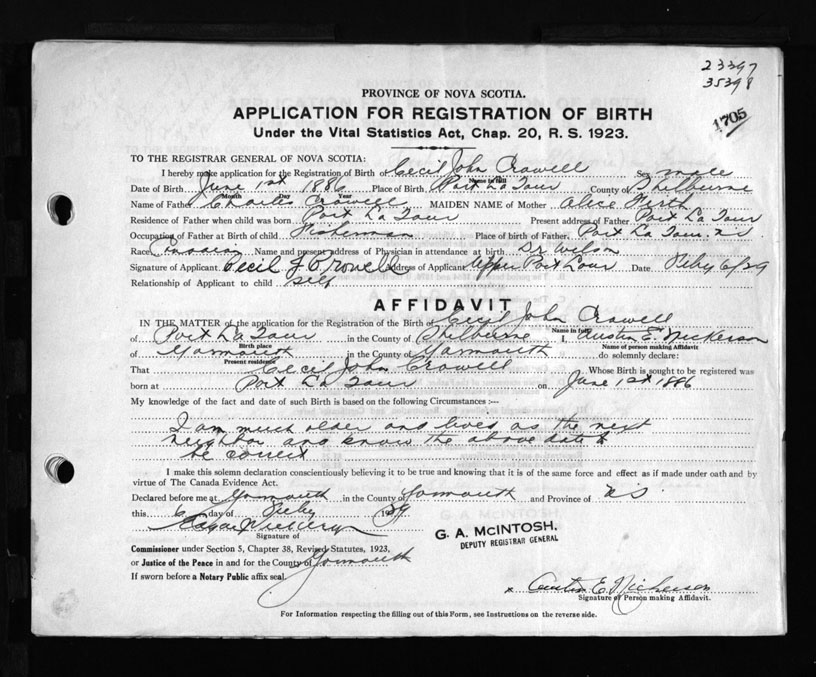 23397
35398
1705
PROVINCE OF NOVA SCOTIA.
APPLICATION FOR REGISTRATION OF BIRTH
Under the Vital Statistics Act, Chap. 20, R. S. 1923.
TO THE REGISTRAR GENERAL OF NOVA SCOTIA:
I hereby make application for the Registration of Birth of Cecil John Crowell Sex male
Name in full
Date of Birth June 1st 1886 Place of Birth Port La Tour County of Shelburne
Month Day Year
Name of Father Charles Crowell MAIDEN NAME of Mother Alice
Residence of Father when child was born Port La Tour Present address of Father Port La Tour
Occupation of Father at Birth of child Fisherman Place of birth of Father Port La Tour N S
Race Name and present address of Physician in attendance at birth Dr Wilson
Signature of Applicant Cecil J Crowell Address of Applicant Upper Port Latour Date Feby 6/39
Relationship of Applicant to child self
AFFIDAVIT
IN THE MATTER of the application for the Registration of the Birth of Cecil John Crowell
Name in full
of Port La Tour in the County of Shelburne I, Austin E. Nickerson
Birth place Name of person making Affidavit
of Yarmouth in the County of Yarmouth do solemnly declare:
Present residence
That Cecil John Crowell Whose Birth is sought to be registered was
born at Port La Tour on June 1st 1886
My knowledge of the fact and date of such Birth is based on the following Circumstances :—
I am much older and lived as the next
neighbor and know the above date to
be correct
I make this solemn declaration conscientiously believing it to be true and knowing that it is of the same force and effect as if made under oath and by
virtue of The Canada Evidence Act.
Declared before me at Yarmouth in the County of Yarmouth and Province of N S
this 6 day of Feby 1939
Signature of
G. A. McINTOSH,
DEPUTY REGISTRAR GENERAL
Commissioner under Section 5, Chapter 38, Revised Statutes, 1923,
or Justice of the Peace in and for the County of Yarmouth
If sworn before a Notary Public affix seal.
x Austin E. Nickerson
Signature of Person making Affidavit.
For Information respecting the filling out of this Form, see Instructions on the reverse side.